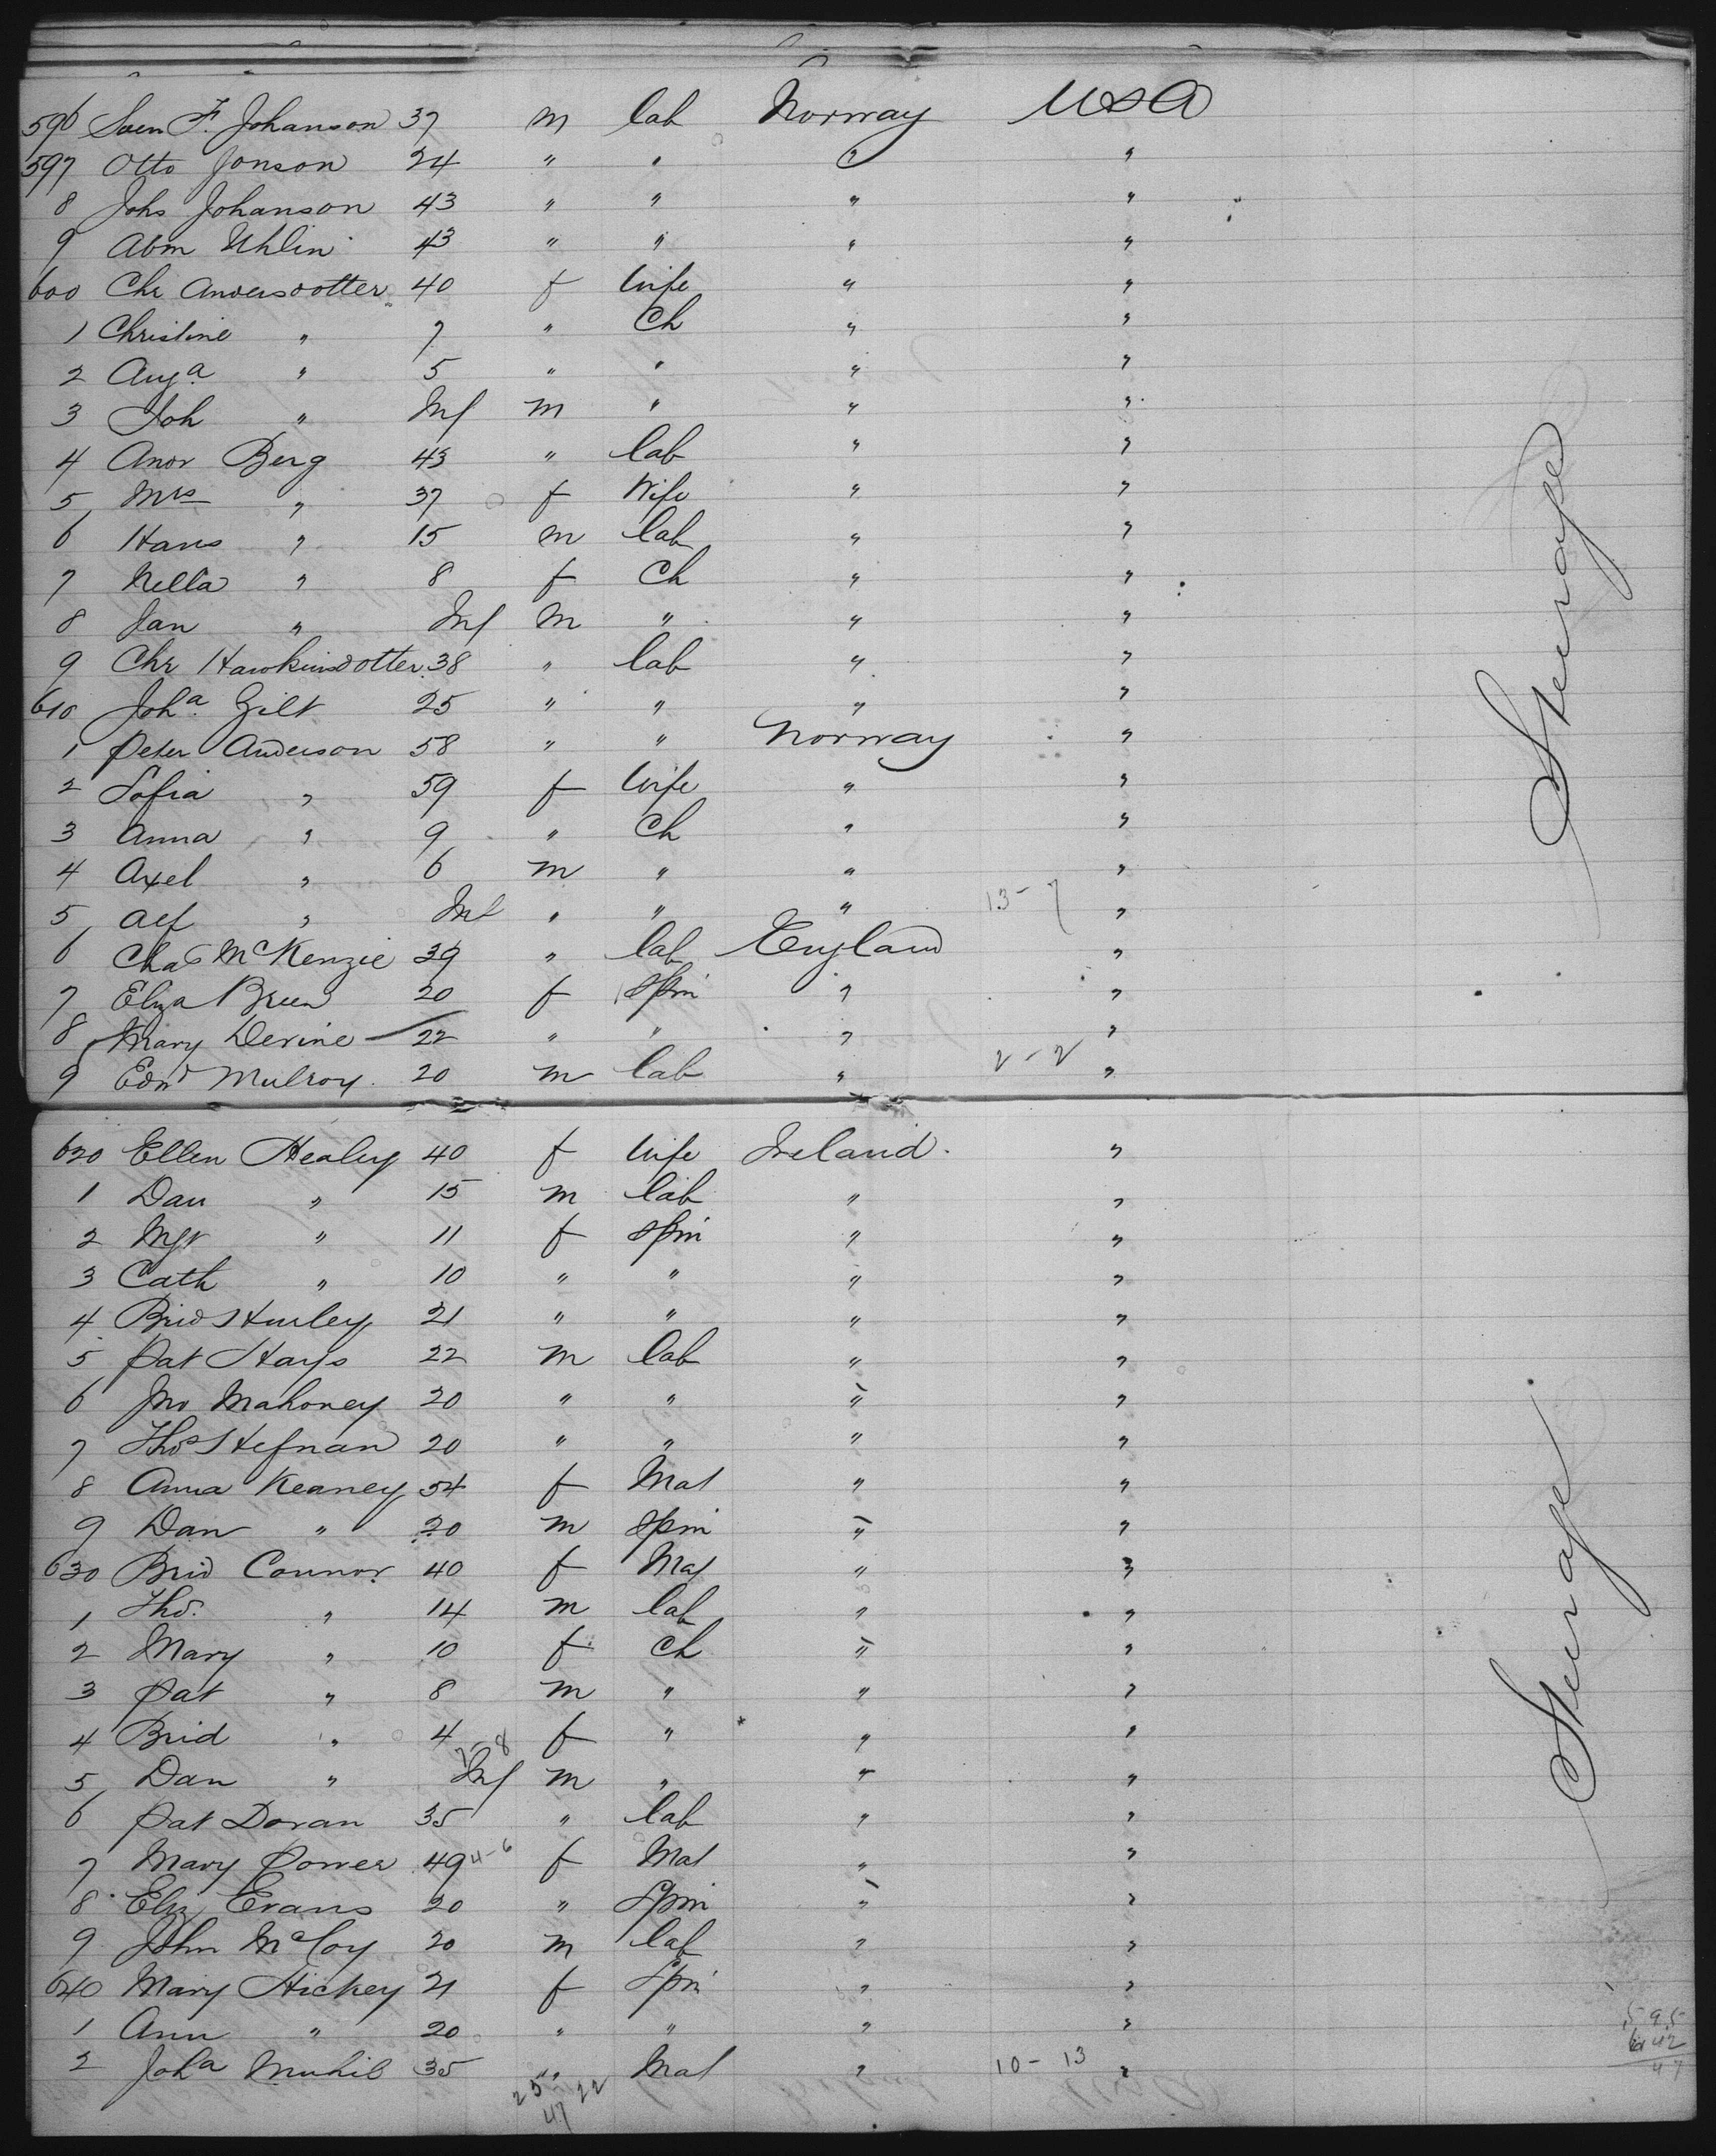 596 Sven F. Johanson 37 m lab Norway USA
597 Otto Jonson 24 " " " "
8 Johs Johanson 43 " " " "
9 Abm Uhlin 43 " " " "
600 Chr Andersdotter 40 f Wife " "
1 Christine " 7 " Ch " "
2 Auga " 5 " " " "
3 Joh " Inf m " " "
4 Andr Berg 43 " lab " "
5 Mrs " 37 f Wife " "
6 Hans " 15 m lab " "
7 Nella " 8 f Ch " "
8 Jan " Inf m " " "
9 Chr Hawkinsdotter 38 " lab " "
610 Joha Gilt 25 " " " "
1 Peter Anderson 58 " " Norway "
2 Sofia " 59 f Wife " "
3 Anna " 9 " Ch " "
4 Axel " 6 m " " "
5 Alf " Inf " " " 13-7 "
6 Chas McKenzie 39 " lab England "
7 Eliza Breen 20 f Spin " "
8 Mary Devine 22 " " " "
9 Edwd Mulroy 20 m lab " 2-2 "
Steerage
620 Ellen Healey 40 f Wife Ireland. "
1 Dan " 15 m lab " "
2 Mgt " 11 f Spin " "
3 Cath " 10 " " " "
4 Brid Hurley 21 " " " "
5 Pat Hays 22 m lab " "
6 Jno Mahoney 20 " " " "
7 Thos Hefnan 20 " " " "
8 Anna Keaney 54 f Mat " "
9 Dan " 20 m Spin " "
630 Brid Connor 40 f Mat " "
1 Tho. " 14 m lab " "
2 Mary " 10 f Ch " "
3 Pat " 8 m " " "
4 Brid " 4 f " " "
7-8
5 Dan " Inf m " " "
6 Pat Doran 35 " lab " "
7 Mary Power 49 4-6 f Mat " "
8 Eliz Evans 20 " Spin " "
9 John McCoy 20 m lab " "
640 Mary Hickey 21 f Spin " "
1 Ann " 20 " " " "
2 Joha 35 " Mat " 10-13 "
25 22
47
Steerage
595
642
47